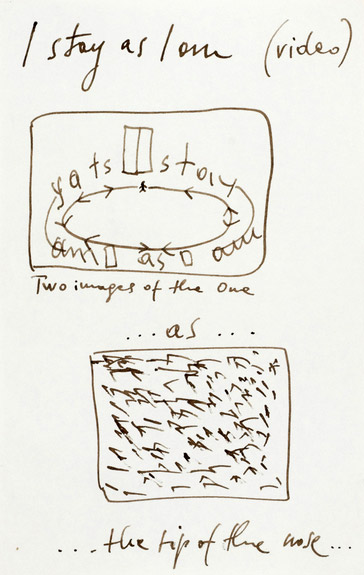 I stay as I am (video)
yats stay
am as am
Two images of the One
...as...
....the tip of the nose...